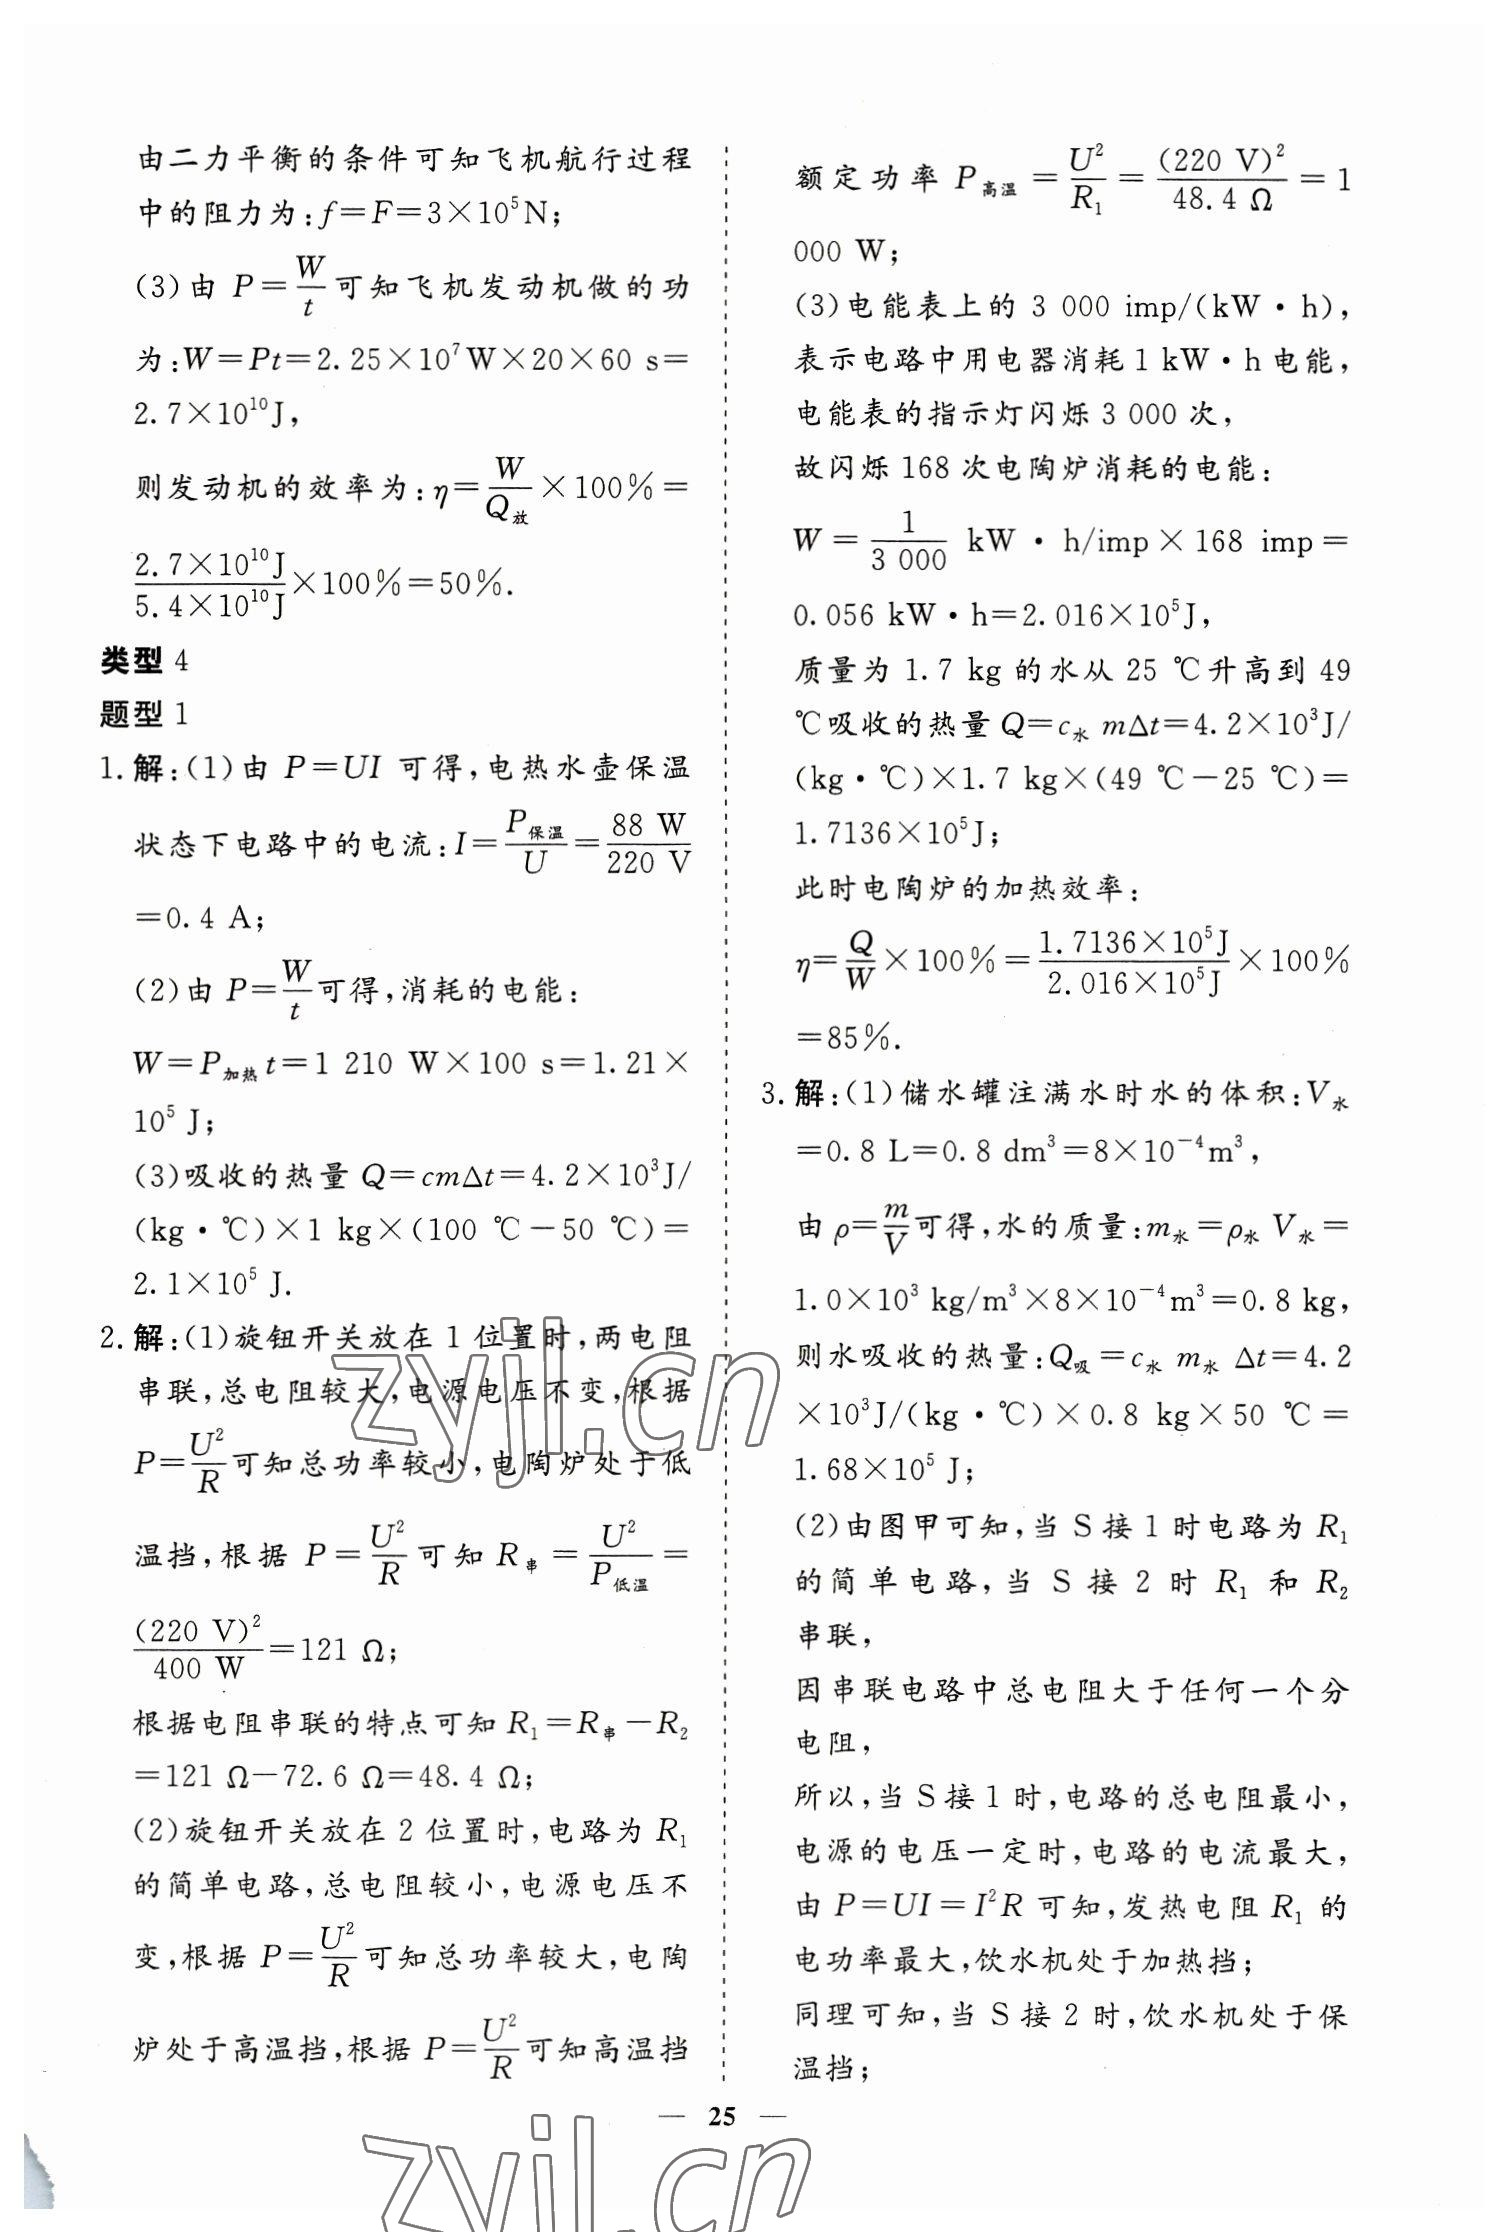 由二力平衡的条件可知飞机航行过程
中的阻力为:f=F=3×10⁵N;
(3)由 P=W/t可知飞机发动机做的功
为:W=Pt=2.25×10⁷W×20×60 s=
2.7×10¹⁰J,
则发动机的效率为:η=W/Q放×100%=
2.7×10¹⁰J/5.4×10¹⁰J×100%=50%.
类型 4
题型 1
1.解:(1)由 P=UI 可得,电热水壶保温
状态下电路中的电流:I=P保温/U=88 W/220 V
=0.4 A;
(2)由 P=W/t可得,消耗的电能:
W=P加热 t=1 210 W×100 s=1.21×
10⁵ J;
(3)吸收的热量 Q=cmΔt=4.2×10³J/
(kg·℃)×1 kg×(100 ℃-50 ℃)=
2.1×10⁵ J.
2.解:(1)旋钮开关放在 1 位置时,两电阻
串联,总电阻较大,电源电压不变,根据
P=U²/R可知总功率较小,电陶炉处于低
温挡,根据 P=U²/R可知 R串=U²/P低温=
(220 V)²/400 W=121 Ω;
根据电阻串联的特点可知 R₁=R串-R₂
=121 Ω-72.6 Ω=48.4 Ω;
(2)旋钮开关放在 2 位置时,电路为 R₁
的简单电路,总电阻较小,电源电压不
变,根据 P=U²/R可知总功率较大,电陶
炉处于高温挡,根据 P=U²/R可知高温挡
额定功率 P高温=U²/R₁=(220 V)²/48.4 Ω=1
000 W;
(3)电能表上的 3 000 imp/(kW·h),
表示电路中用电器消耗 1 kW·h 电能,
电能表的指示灯闪烁 3 000 次,
故闪烁 168 次电陶炉消耗的电能:
W=1/3 000 kW·h/imp×168 imp=
0.056 kW·h=2.016×10⁵J,
质量为 1.7 kg 的水从 25 ℃升高到 49
℃吸收的热量 Q=c水 mΔt=4.2×10³J/
(kg·℃)×1.7 kg×(49 ℃-25 ℃)=
1.7136×10⁵J;
此时电陶炉的加热效率:
η=Q/W×100%=1.7136×10⁵J/2.016×10⁵J×100%
=85%.
3.解:(1)储水罐注满水时水的体积:V水
=0.8 L=0.8 dm³=8×10⁻⁴m³,
由 ρ=m/V可得,水的质量:m水=ρ水 V水=
1.0×10³ kg/m³×8×10⁻⁴m³=0.8 kg,
则水吸收的热量:Q吸=c水 m水 Δt=4.2
×10³J/(kg·℃)×0.8 kg×50 ℃=
1.68×10⁵ J;
(2)由图甲可知,当 S 接 1 时电路为 R₁
的简单电路,当 S 接 2 时 R₁ 和 R₂
串联,
因串联电路中总电阻大于任何一个分
电阻,
所以,当 S接 1 时,电路的总电阻最小,
电源的电压一定时,电路的电流最大,
由 P=UI=I²R 可知,发热电阻 R₁ 的
电功率最大,饮水机处于加热挡;
同理可知,当 S 接 2 时,饮水机处于保
温挡;
— 25 —
zyjl.cn
zyjl.cn